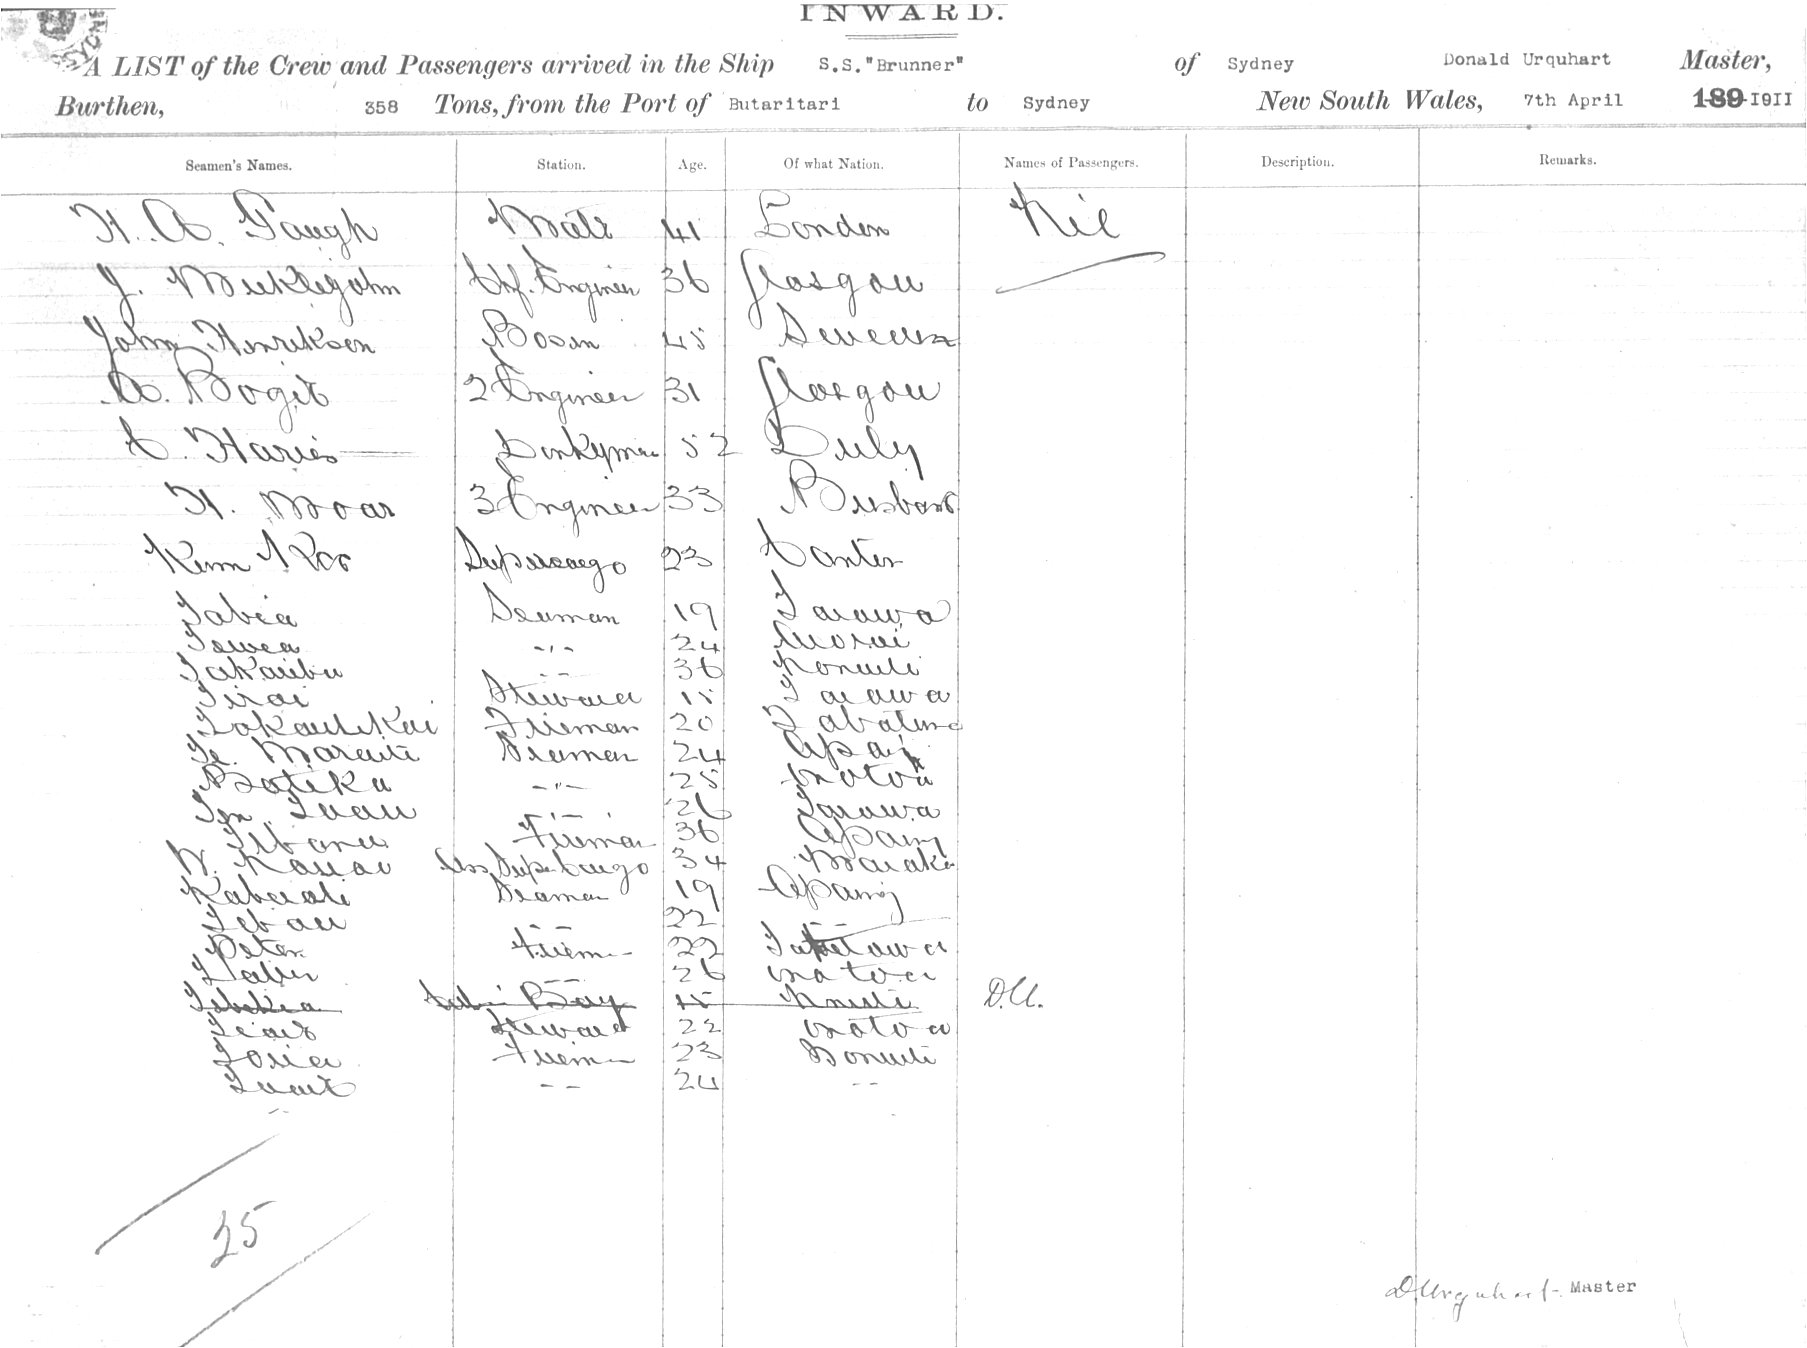 INWARD.
A LIST of the Crew and Passengers arrived in the Ship S.S."Brunner" of Sydney Donald Urquhart Master,
Burthen, 358 Tons, from the Port of Butaritari to Sydney New South Wales, 7th April 189 1911
Seamen's Names. Station. Age. Of what Nation. Names of Passengers. Description. Remarks.
H. A. Gaugh Mate 41 London Nil
J. Micklejohn Chf. Engineer 36 Glasgow
John Henrikson Bosun 45 Sweden
A. Bogie 2 Engineer 31 Glasgow
C. Haris Donkyman 52
H. Moar 3 Engineer 33 Brisbane
Supercargo 23 Canton
Tabia Seaman 19 Tarawa
Tewea -"- 24
Takaibu -- 36 Nonuiti
Tirai Steward 15 Tarawa
Fireman 20
Te Maraiti Seaman 24 Apaing
Bateka -"- 25 Onotoa
Ten Tuau -"- 26 Tarawa
Fireman 36 Apaing
Ass Supercargo 34 Maiaki
Seaman 19 Apaing
Tebau -- 22 --
Peter Fireman 22
-- 26 Onotoa
Boy 15 D.U.
Steward 22 Onotoa
Toria Fireman 23 Nonuiti
-- 24 --
--
25
D Urquhart. Master